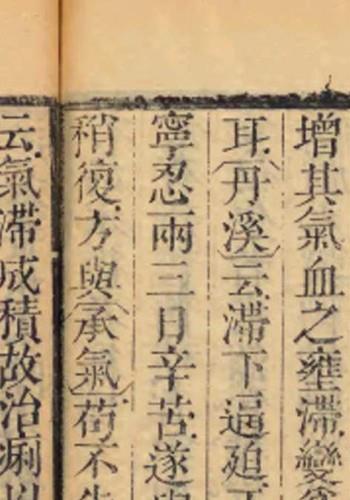 增其氣血之壅滯變
耳丹溪云滯下逼廹
寧忍兩三日辛苦遂
稍復方與承氣苟不
云氣滯成積故治痢以